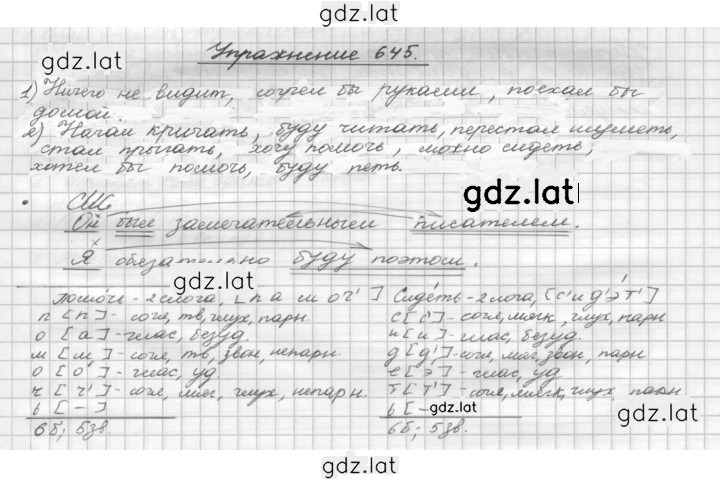 gdz.lat
gdz.lat
Упражнение 645.
1) Ничего не видит, сочтём бы руками, поехал бы
домой.
2) Начал кричать, буду читать, перестал шуметь,
стал прыгать, хочу помочь, можно сидеть,
хотел бы помочь, буду петь.
gdz.lat
СИС
Он был замечательным писателем.
gdz.lat
х
Я обязательно буду поэтом.
gdz.lat
Помочь - 2 слога, [п а м о ч' ]
п [п] - согл, тв, глух, парн.
о [а] - глас, безуд.
м [м] - согл, тв, звон, непарн.
о [о́] - глас, уд.
ч [ч'] - согл, мяг, глух, непарн.
ь [-]
6б; 5зв.
Сиде́ть - 2 слога, [с'и д'э́ т']
с [с'] - согл, мягк, глух, парн
и [и] - глас, безуд.
д [д'] - согл, мяг, звон, парн
е [э] - глас, уд
т [т'] - согл, мягк, глух, парн.
ь [-]
gdz.lat
6б; 5зв.
gdz.lat
gdz.lat